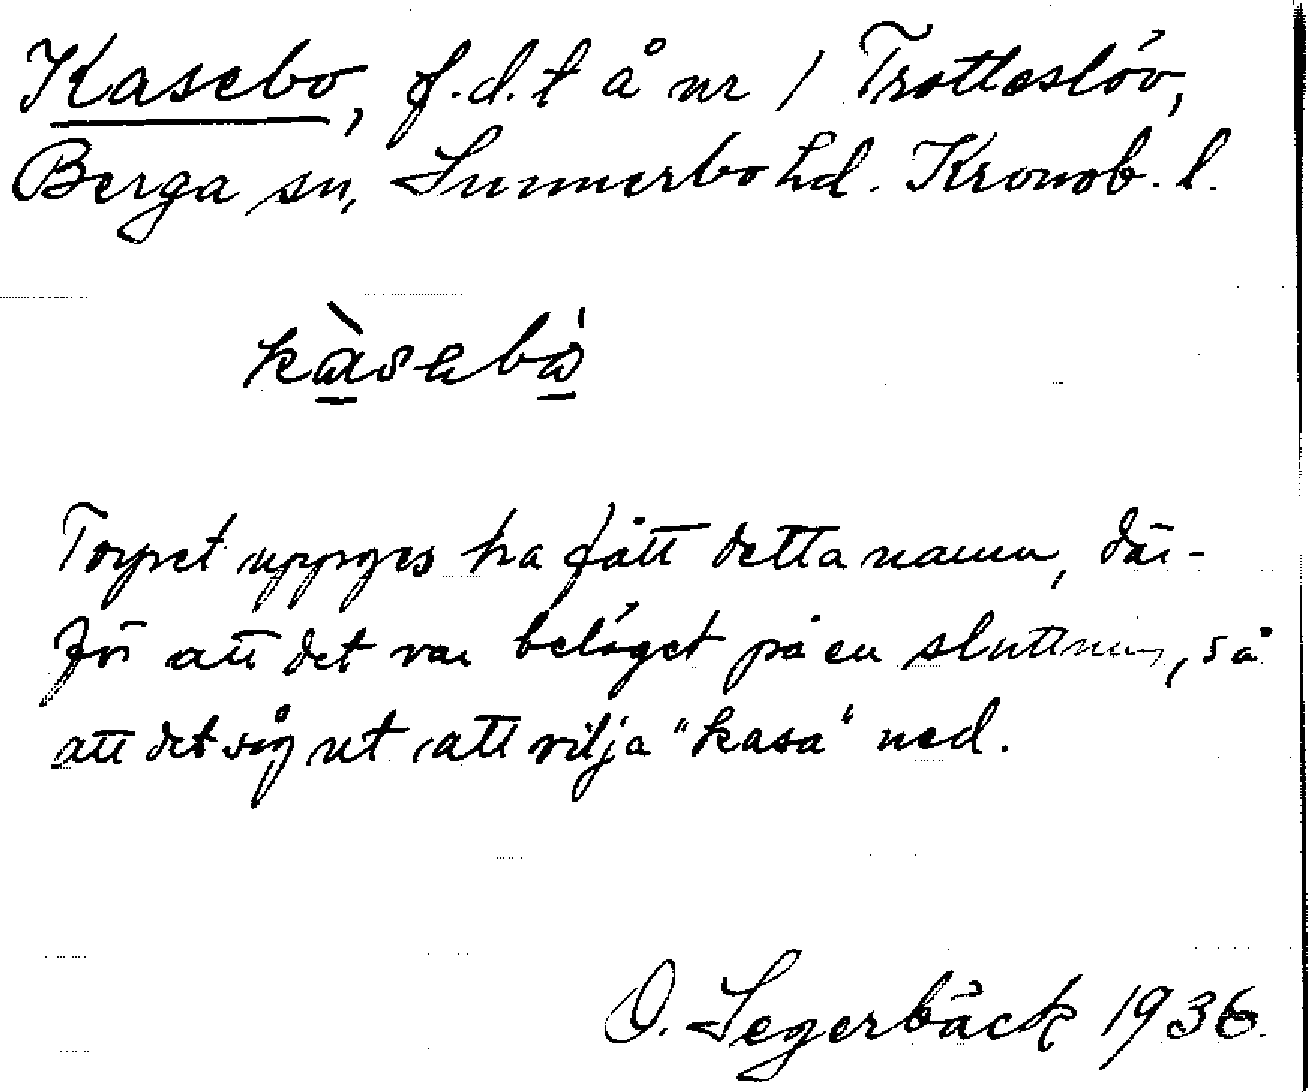 Kasebo, f.d.t å nr 1 Trotteslöv,
Berga sn, Sunnerbo hd. Kronob. l.
kàsebó
Torpet uppges ha fått detta namn, där-
för att det var beläget på en sluttning, så
att det såg ut att vilja "kasa" ned.
O. Segerbäck 1936.